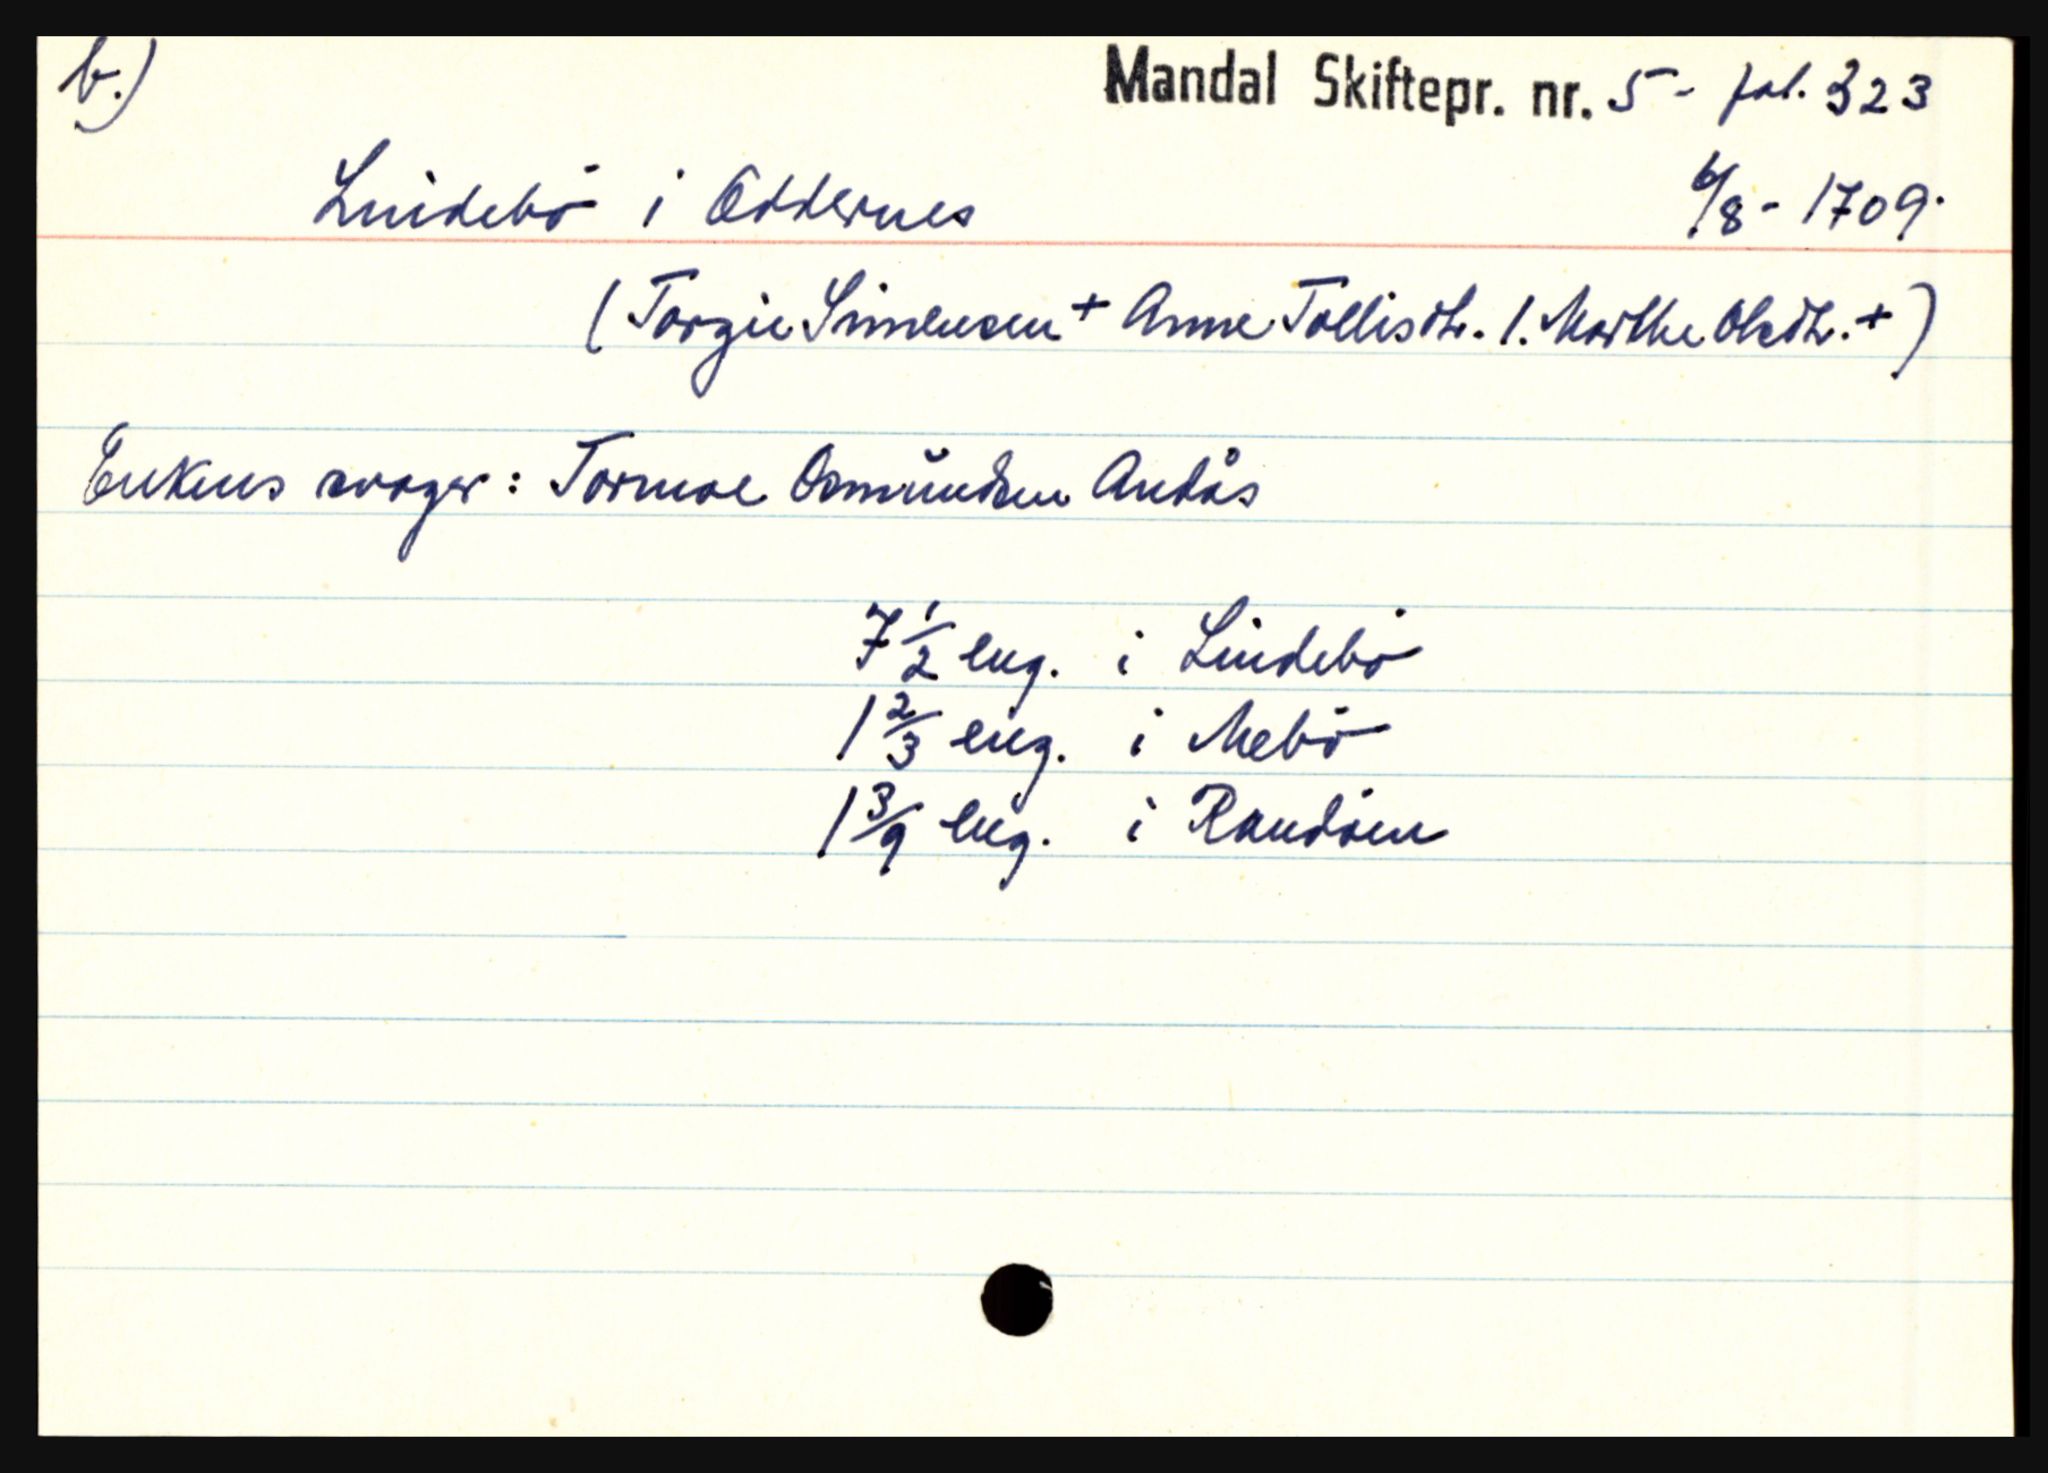 b.)
Mandal Skiftepr. nr. 5 - fol. 323
Lindebö i Oddernes 6/8 - 1709.
(Torgie Simensen + Anne Tollisdtr. 1. Marthe Olsdtr. +)
Enkens svager: Tormoe Osmŭndsen Andås
7 1/2 eng. i Lindebö
1 2/3 eng. i Mebö
1 3/9 eng. i Randöen